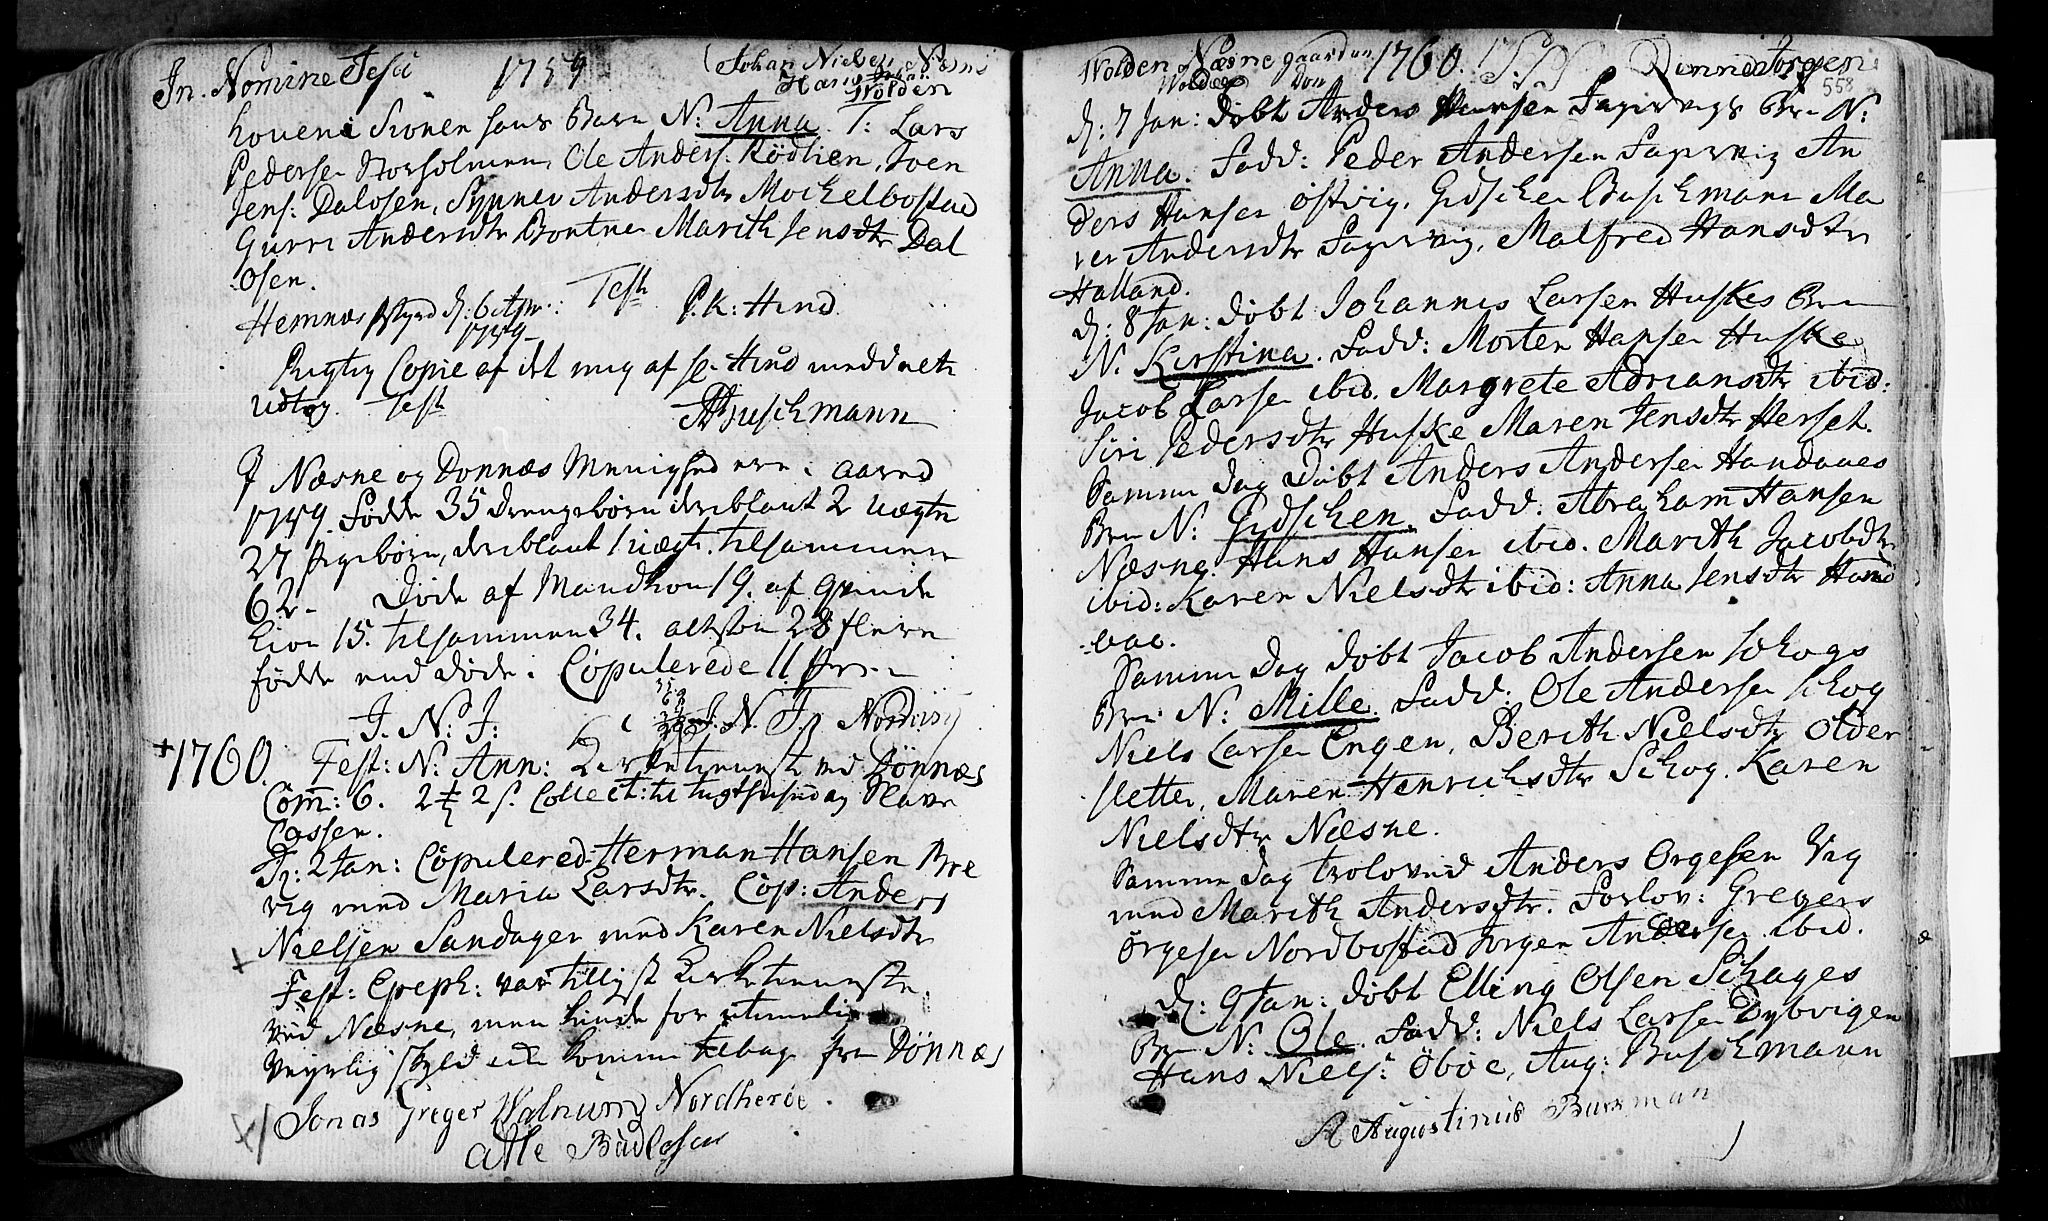 In Nomine Jesu 1759 (Johan Nielsen Næsne
Hans Wolden
Barn N: Anna. T: Lars
Pedersen Storholmen, Ole Anders: Rödlien, Iven
Jens: Dalosen, Synnev Andersdtr Mochelbostad
Gurri Andersdtr Bontne Marith Jensdtr Dal
osen.
Hemnæs d: 6 Test P.k: Hind
1759
Rigtig Copie af det mig af hr. Hind meddelte
Udtog. Test ABuschmann
I Næsne og Donnæs Menighed ere i aared
1759. Fødde 35 Drengebørn deriblant 2 uægte
27 Pigebørn, deriblant 1 uægte. tilsammen
62 - Døde af Mandkion 19. af Qvinde
kion 15. tilsammen 34. altsaa 28 flere
fødde end døde. Copulerede 11 Par
J. N: J: J. N. J. Nordvig
1760. Fest: N: Ann: Kirketieneste ved Dönnæs
Com: 6. Collect: til tugthuset og Slave
Cassen.
D: 2 Jan: Copulered Herman Hansen Bre
vig med Maria Larsdtr. Cop: Anders
Nielsen Sandager med Karen Nielsdtr
Fest: Epeph: var tillyst Kirketieneste
ved Næsne, men kunde for utimelig
Veyrlig skyld ei komme tilbage fra Dönnæs
Jonas Greger Walnum Nordherøe.
Atle Budlosen
Wolden Næsne gaarden 1760. Dønnes Jørgen
558
d: 7 Jan: døbt Anders Hansen Fagervigs Brn N:
Anna. Fadd: Peder Andersen Fagervig An
ders Hansen Østvig, Gidschen Buschmann Ma
ren Andersdtr Fagervig, Malfred Hansdtr
Halland.
d: 8 Jan: døbt Johannis Larsen Huskes Brn
N. Kirstina. Fadd: Morten Hansen Huske
Jacob Larsen ibid. Margrete Adriansdtr ibid:
Siri Pedersdtr Huske Maren Jensdtr Herset.
Samme Dag Døbt Anders Andersen Handaaes
Brn N: Gidschen. Fadd: Abraham Hansen
Næsne. Hans Hansen ibid. Marith Jacobdtr
ibid: Karen Nielsdtr ibid: Anna Jensdtr Hand
aae.
Samme dag døbt Jacob Andersen Schogs
Brn N: Mille. Fadd: Ole Andersen Schog
Niels Larsen Engen, Berith Nielsdtr Older
sletter, Maren Henrichsdtr Schog. Karen
Nielsdtr Næsne.
Samme Dag troloved Anders Orgesen Vig
med Marith Andersdtr. Forlov: Gregers
Örgesen Nordbostad Jorgen Andersen ibid.
d: 9 Jan: døbt Elling Olsen Schages
Brn N: Ole. Fadd: Niels Larsen Dybvigen
Hans Niels: Öböe, Aug: Buschmann
Augustinus Burman